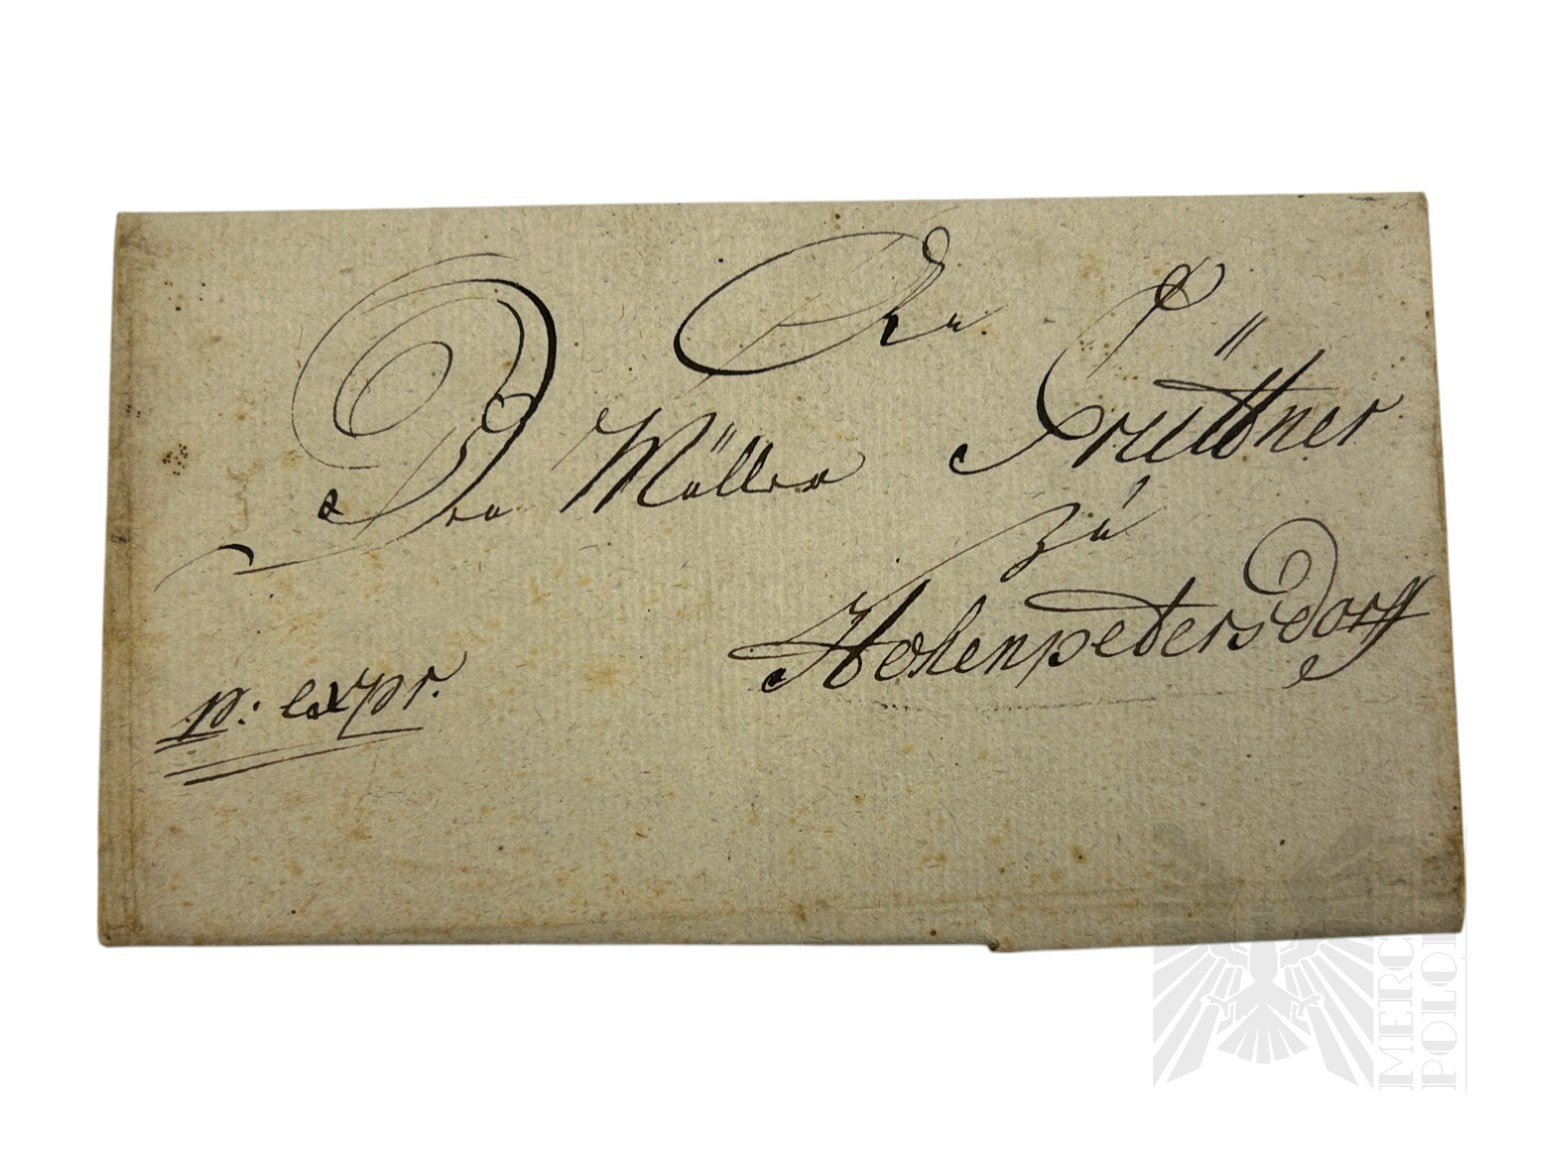 An
Den Müller Grüttner
zu
Hohenpetersdorff
p: expr.
MERC
POLO